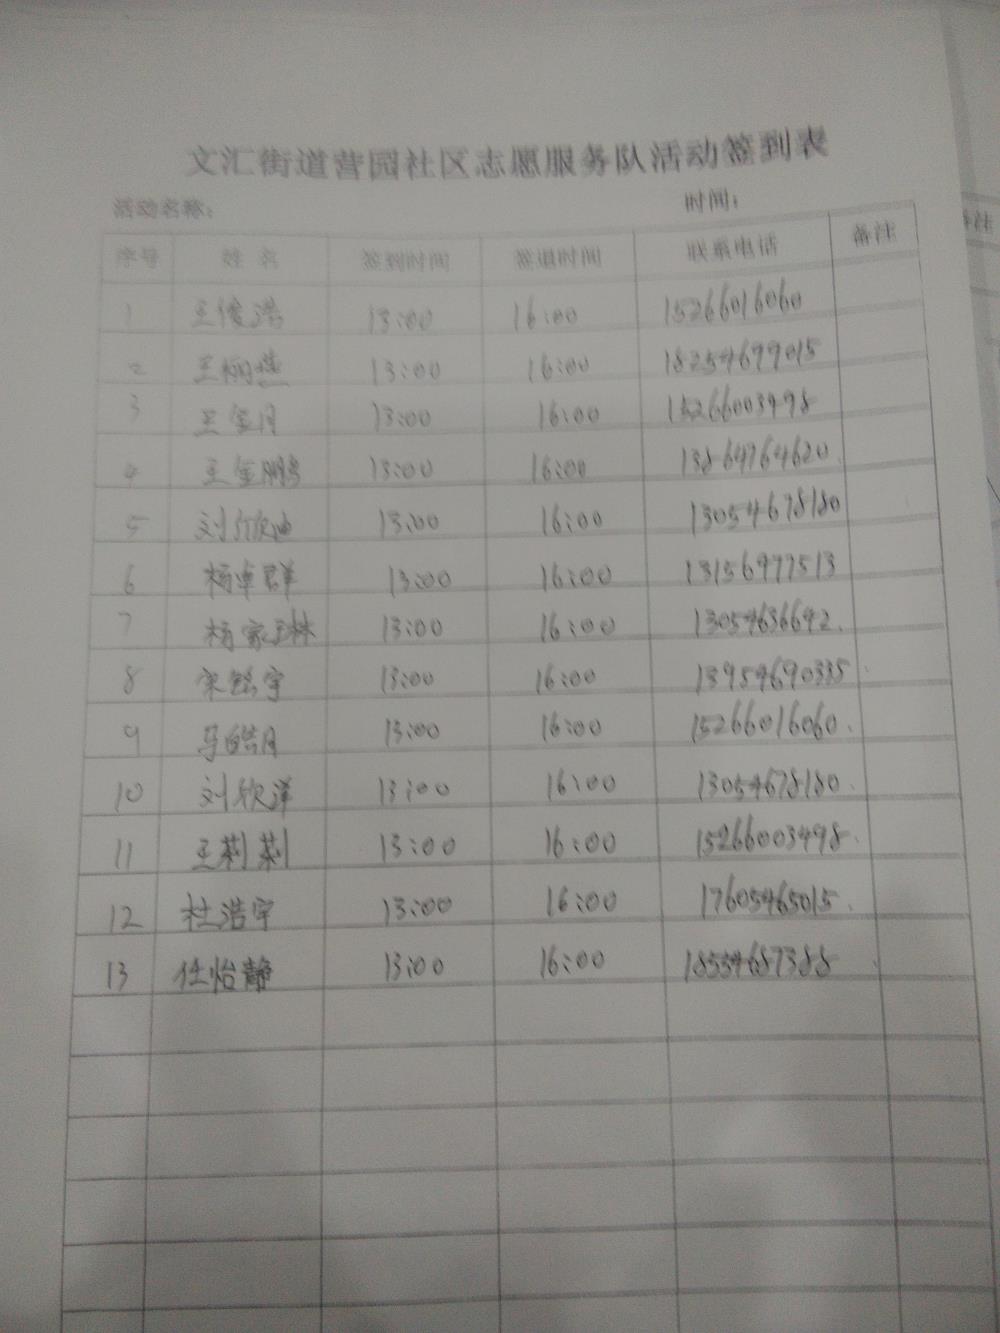 文汇街道营园社区志愿服务队活动签到表
活动名称: 时间:
序号 姓名 签到时间 签退时间 联系电话 备注
1 王俊浩 13:00 16:00 15266016060
2 王 13:00 16:00 18254699015
3 王金月 13:00 16:00 15266003498
4 王金鹏 13:00 16:00 13864764620
5 刘欣迪 13:00 16:00 13054678180
6 杨卓群 13:00 16:00 13156977513
7 杨家琳 13:00 16:00 13054636642
8 宋铭宇 13:00 16:00 13954690335
9 马皓月 13:00 16:00 15266016060
10 刘欣洋 13:00 16:00 13054678180
11 王莉莉 13:00 16:00 15266003498
12 杜浩宇 13:00 16:00 17605465015
13 任怡静 13:00 16:00 18554687388
备注